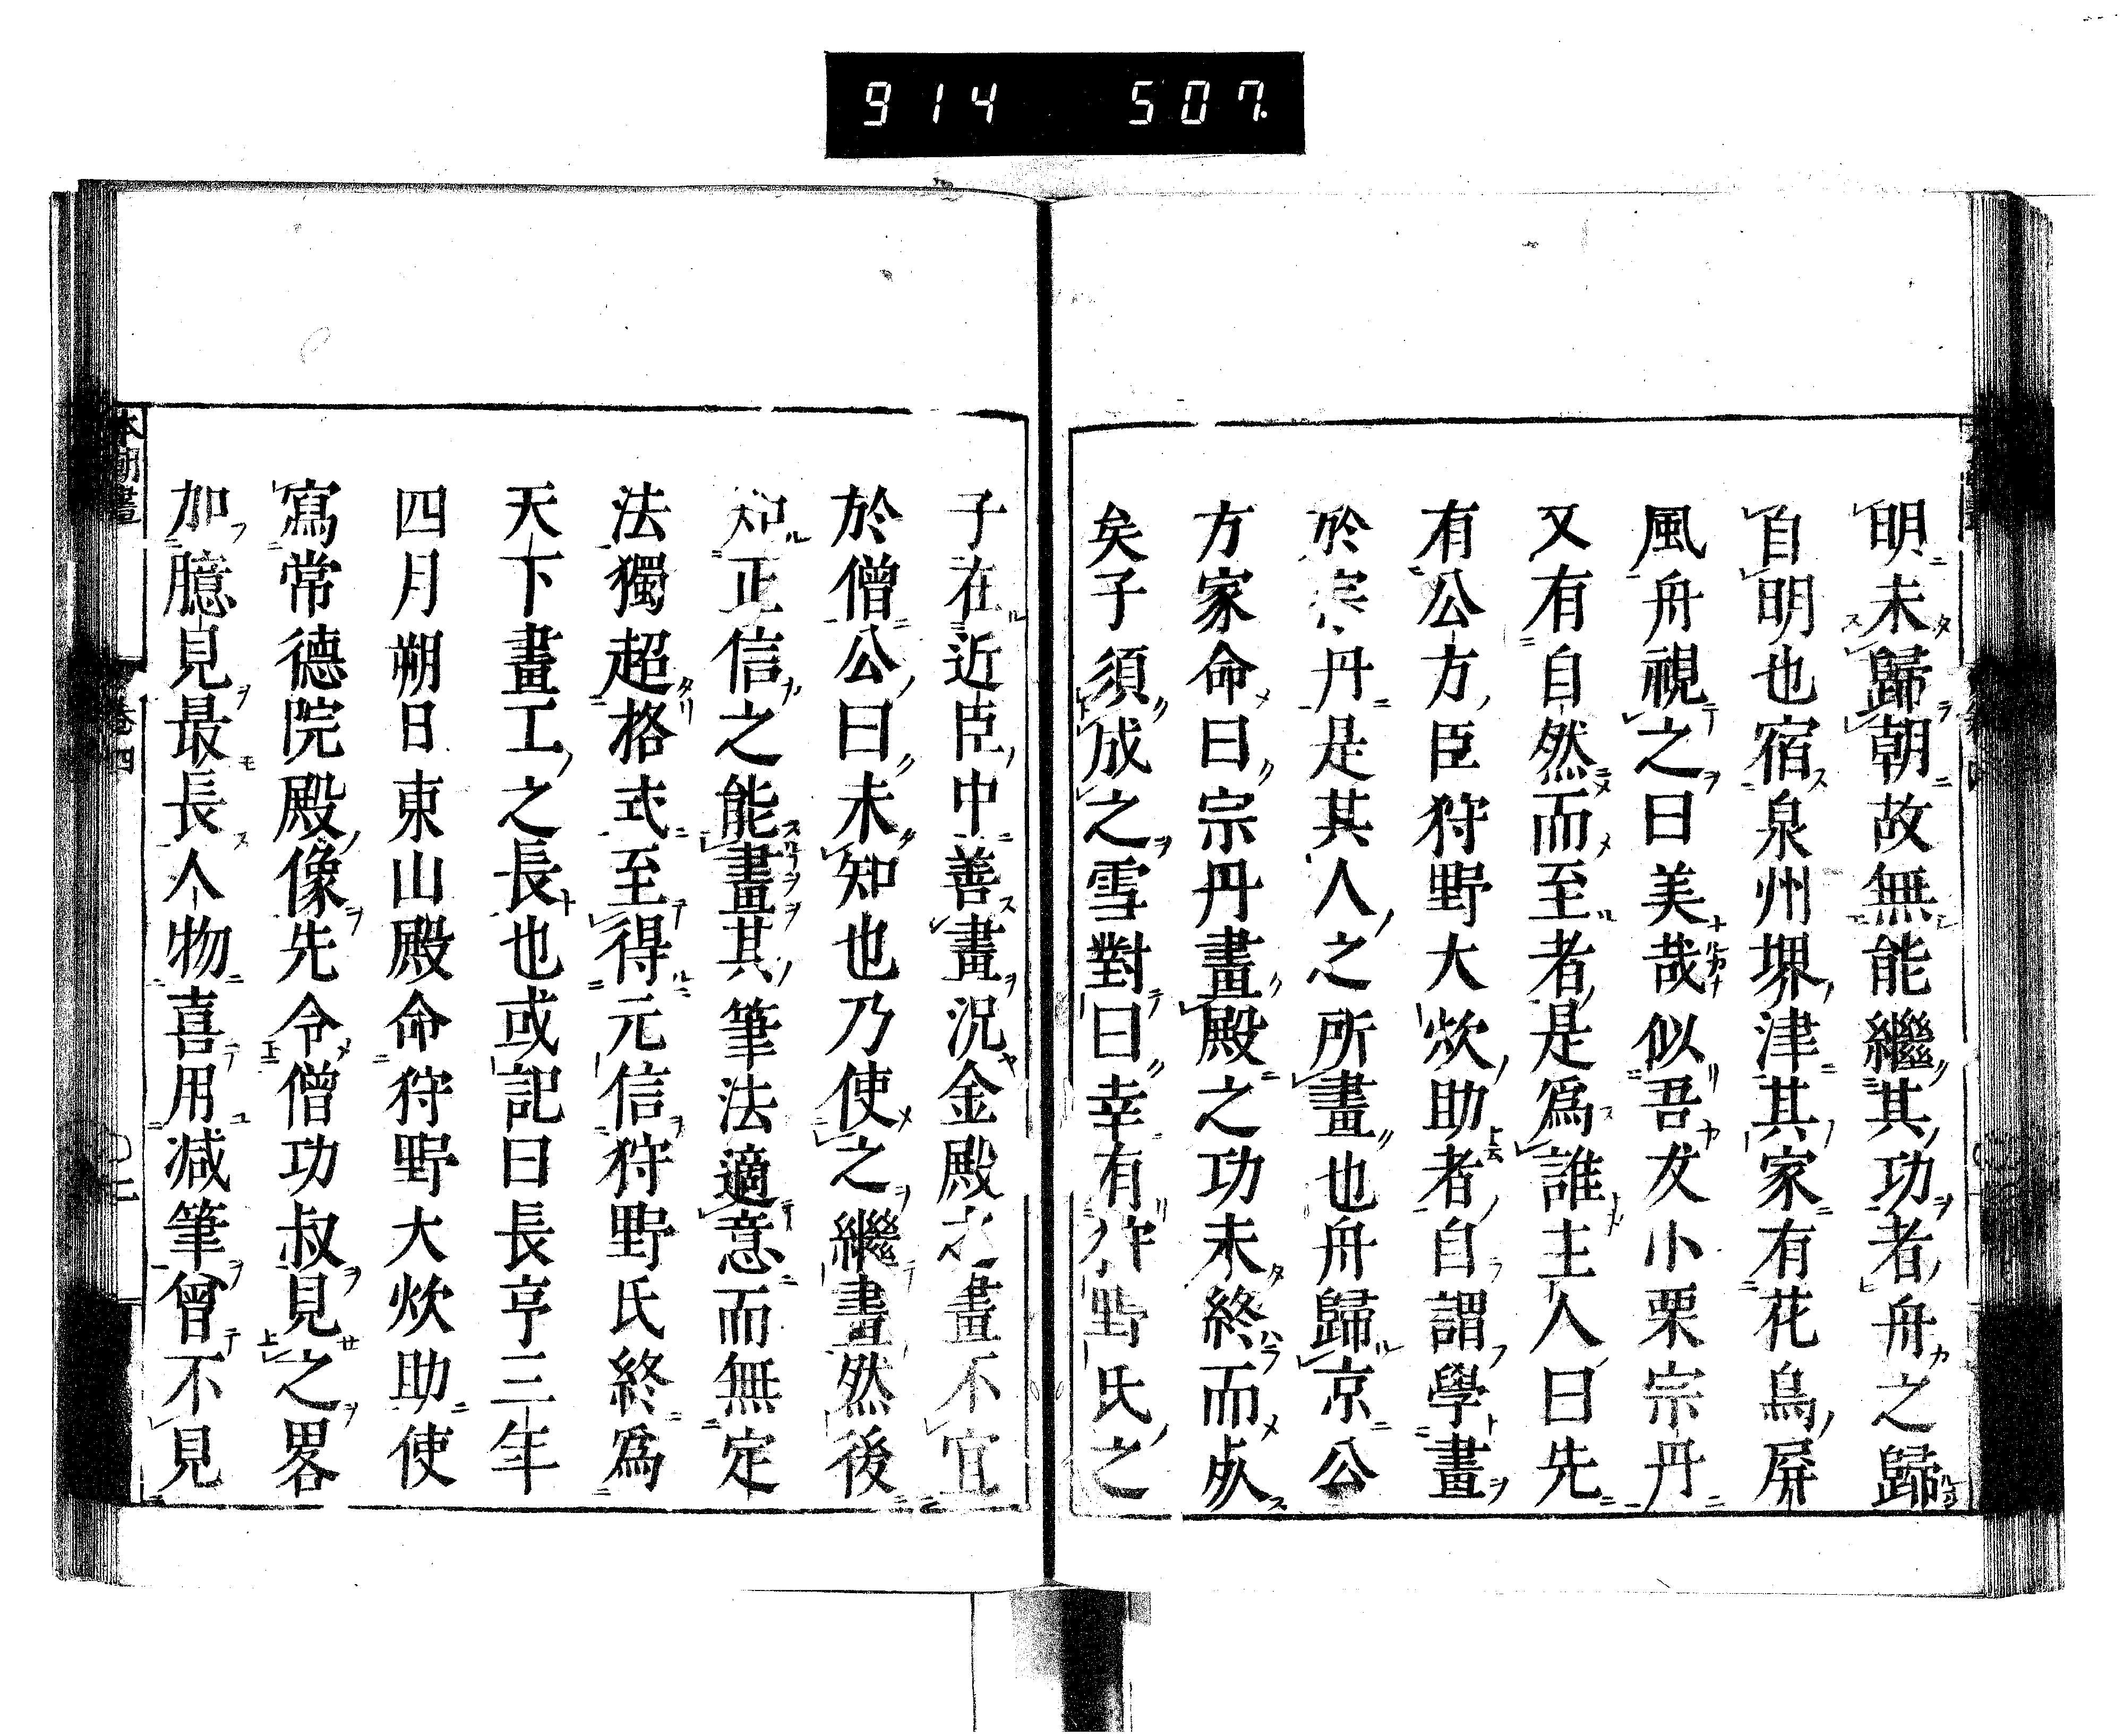 914 507.
明未歸朝故無能繼其功者舟之歸
自明也宿泉州堺津其家有花鳥屏
風舟視之曰美哉似吾友小栗宗丹
又有自然而至者是爲誰主人曰先
有公方臣狩野大炊助者自謂學畫
於宗丹是其人之所畫也舟歸京公
方家命曰宗丹畫殿之功未終而歿
矣子須成之雪對曰幸有狩野氏之
子在近臣中善畫況金殿之畫不宜
於僧公曰未知也乃使之繼畫然後
知正信之能畫其筆法適意而無定
法獨超格式至得元信狩野氏終爲
天下畫工之長也或記曰長享三年
四月朔日東山殿命狩野大炊助使
寫常德院殿像先令僧功叔見之畧
加臆見最長人物喜用減筆曾不見
本朝畫 卷四